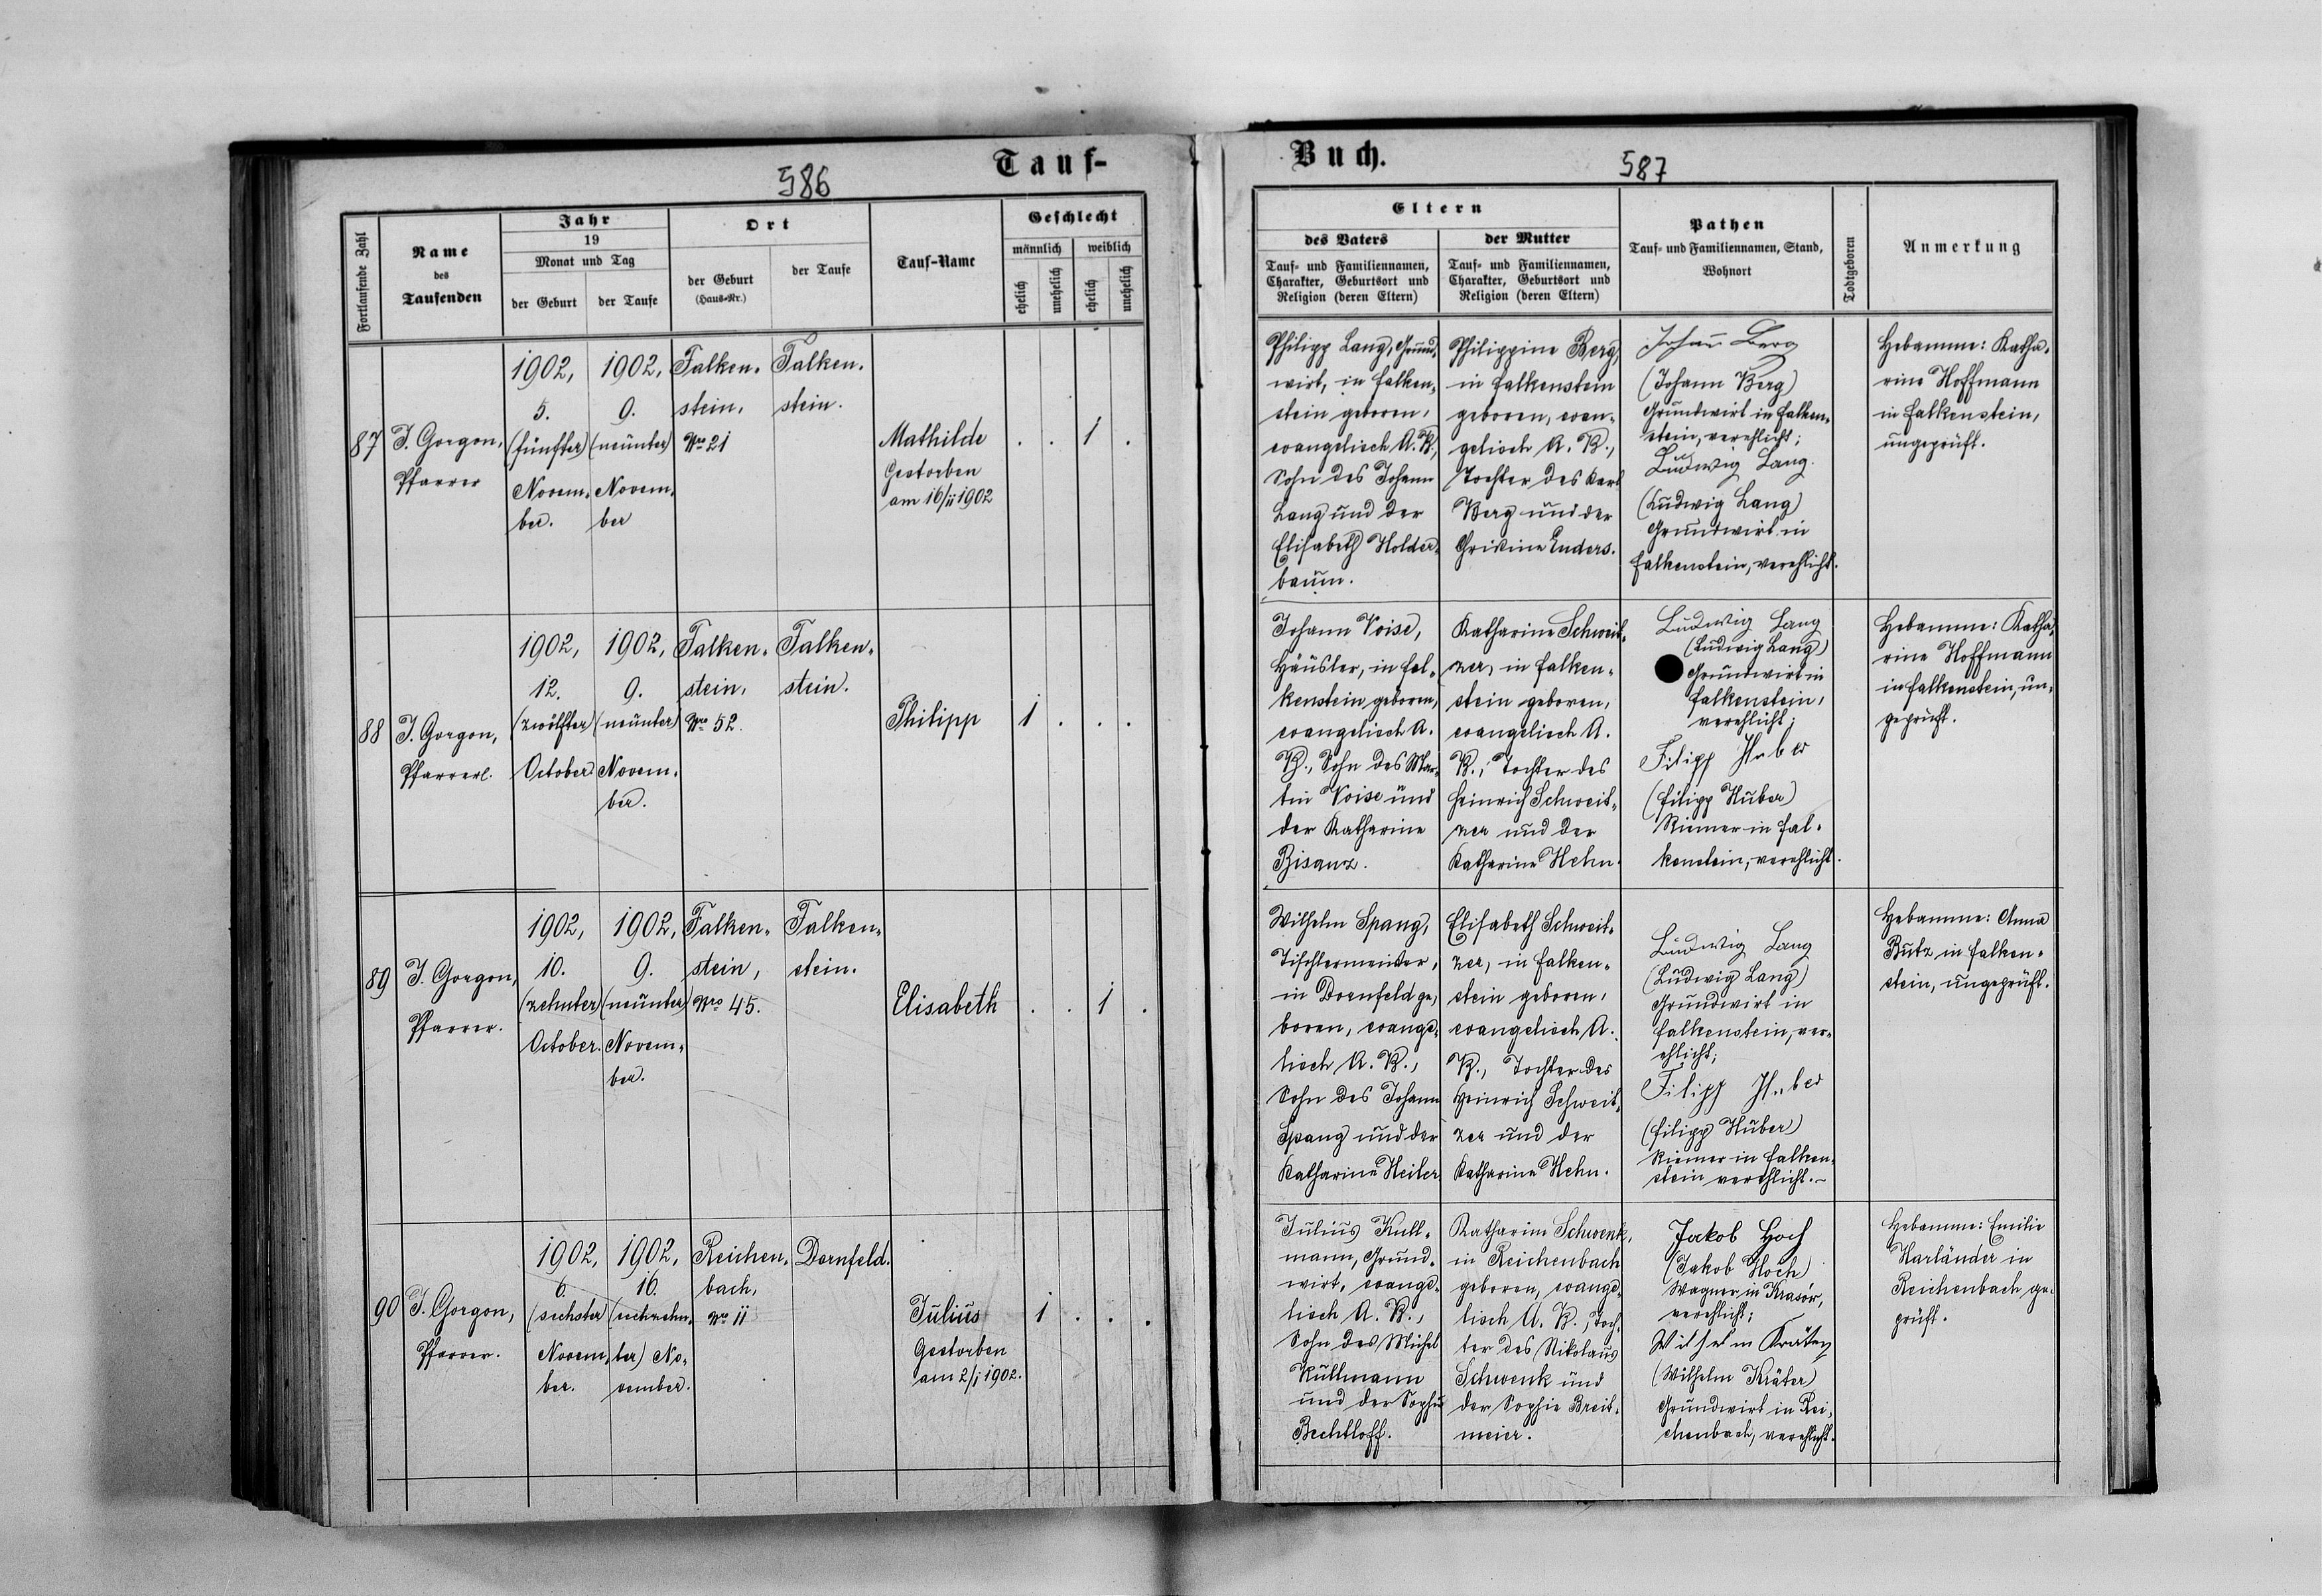 586
Tauf-
Fortlaufende Zahl
Name
des
Taufenden
Jahr
19
Monat und Tag
der Geburt
der Taufe
Ort
der Geburt
(Haus-Nr.)
der Taufe
Tauf-Name
Geschlecht
männlich
weiblich
ehelich
unehelich
ehelich
unehelich
87
J. Gorgon,
Pfarrer
1902,
5.
(fünfter)
Novem-
ber.
1902,
9.
(neünter)
Novem-
ber
Falken-
stein,
Nro 21
Falken-
stein.
Mathilde
Gestorben
am 16/11 1902
. . 1 .
88
J. Gorgon,
Pfarrer.
1902,
12.
(zwölfter)
October
1902,
9.
(neünter)
Novem-
ber.
Falken-
stein,
Nro 52.
Falken-
stein.
Philipp
1 . . .
89
J. Gorgon,
Pfarrer.
1902,
10.
(zehnter)
October.
1902,
9.
(neünter)
Novem-
ber.
Falken-
stein,
Nro 45.
Falken-
stein.
Elisabeth
. . 1 .
90
J. Gorgon,
Pfarrer.
1902,
6.
(sechster)
Novem-
ber.
1902,
16.
(sechzehn-
ter) No-
vember.
Reichen-
bach,
Nro 11
Dornfeld.
Julius
Gestorben
am 2/1 1902.
1 . . .
Buch.
587
Eltern
des Vaters
Tauf- und Familiennamen,
Charakter, Geburtsort und
Religion (deren Eltern)
der Mutter
Tauf- und Familiennamen,
Charakter, Geburtsort und
Religion (deren Eltern)
Pathen
Tauf- und Familiennamen, Stand,
Wohnort
Todtgeboren
Anmerkung
Philipp Lang, Grund-
wirt, in Falken-
stein geboren,
evangelisch A. B.,
Sohn des Johann
Lang und der
Elisabeth Holder-
baum.
Philippine Berg,
in Falkenstein
geboren, evan-
gelisch A. B.,
Tochter des Karl
Berg und der
Christine Enders.
Johann Berg
(Johann Berg)
Grundwirt in Falken-
stein, verehlicht;
Ludwig Lang.
(Ludwig Lang)
Grundwirt in
Falkenstein, verehlicht.
Hebamme: Katha-
rine Hoffmann
in Falkenstein,
ungeprüft.
Johann Voise,
Häusler, in Fal-
kenstein geboren,
evangelisch A.
B., Sohn des Mar-
tin Voise und
der Katharine
Bisanz.
Katharine Schweit-
zer, in Falken-
stein geboren,
evangelisch A.
B., Tochter des
Heinrich Schweit-
zer und der
Katharine Hehn.
Ludwig Lang
(Ludwig Lang)
Grundwirt in
Falkenstein,
verehlicht;
Filipp Huber
(Filipp Huber)
Riemer in Fal-
kenstein, verehlicht.
Hebamme: Katha-
rine Hoffmann
in Falkenstein, un-
geprüft.
Wilhelm Spang,
Tischlermeister,
in Dornfeld ge-
boren, evange-
lisch A. B.,
Sohn des Johann
Spang und der
Katharine Heiler
Elisabeth Schweit-
zer, in Falken-
stein geboren,
evangelisch A.
B., Tochter des
Heinrich Schweit-
zer und der
Katharine Hehn.
Ludwig Lang
(Ludwig Lang)
Grundwirt in
Falkenstein, ver-
ehlicht;
Filipp Huber
(Filipp Huber)
Riemer in Falken-
stein verehlicht.-
Hebamme: Anna
Butz in Falken-
stein, ungeprüft.
Julius Kull-
mann, Grund-
wirt, evange-
lisch A. B.,
Sohn des Michel
Kullmann
und der Sophie
Bechtloff.
Katharine Schwenk,
in Reichenbach
geboren, evange-
lisch A. B., Toch-
ter des Nikolaus
Schwenk und
der Sophie Breit-
meier.
Jakob Hoch
(Jakob Hoch)
Wagner in Krasów,
verehlicht;
Wilhelm Kräter
(Wilhelm Kräter)
Grundwirt in Rei-
chenbach, verehlicht.
Hebamme: Emilie
Harländer in
Reichenbach ge-
prüft.